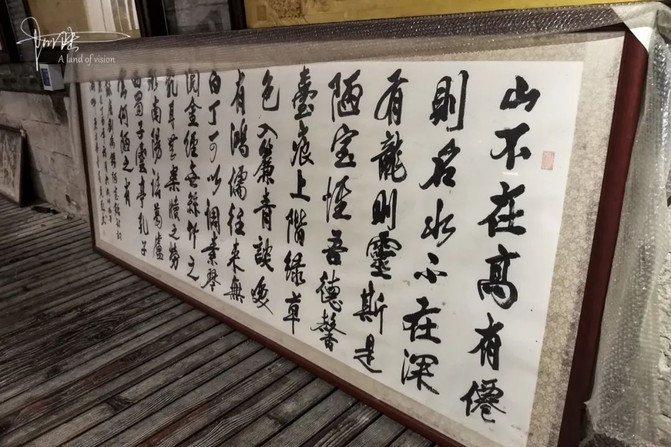 山不在高有僊
則名水不在深
有龍則靈斯是
陋室惟吾德馨
臺痕上階緑草
色入簾青談咲
有鴻儒往來無
白丁可以調素琴
閱金經無絲竹之
亂耳無案牘之勞
形南陽諸葛廬
西蜀子雲亭孔子
云何陋之有
A land of vision